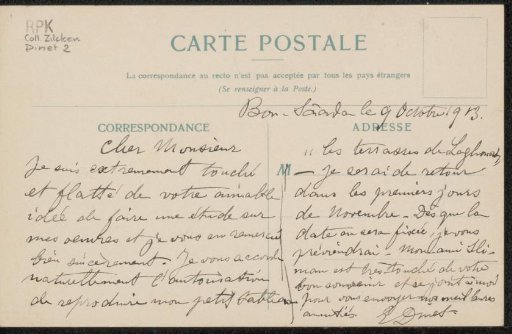 RPK
Coll. Zilcken
Dinet 2
CARTE POSTALE
La correspondance au recto n'est pas acceptée par tous les pays étrangers
(Se renseigner à la Poste.)
Bou-Saâda le 9 Octobre 1913.
CORRESPONDANCE
Cher Monsieur
Je suis extremement touché
et flatté de votre aimable
idée de faire une étude sur
mes oeuvres et je vous en remercie
très sincèrement. Je vous accorde
naturellement l'autorisation
de reproduire mon petit tableau
ADRESSE
"les terrasses de Laghouat"
- Je serai de retour
dans les premiers jours
de Novembre - Dès que la
date en sera fixée, je vous
préviendrai - Mon ami Sli-
man est très touché de votre
bon souvenir et se joint à moi
pour vous envoyer nos meilleures
amitiés. E Dinet